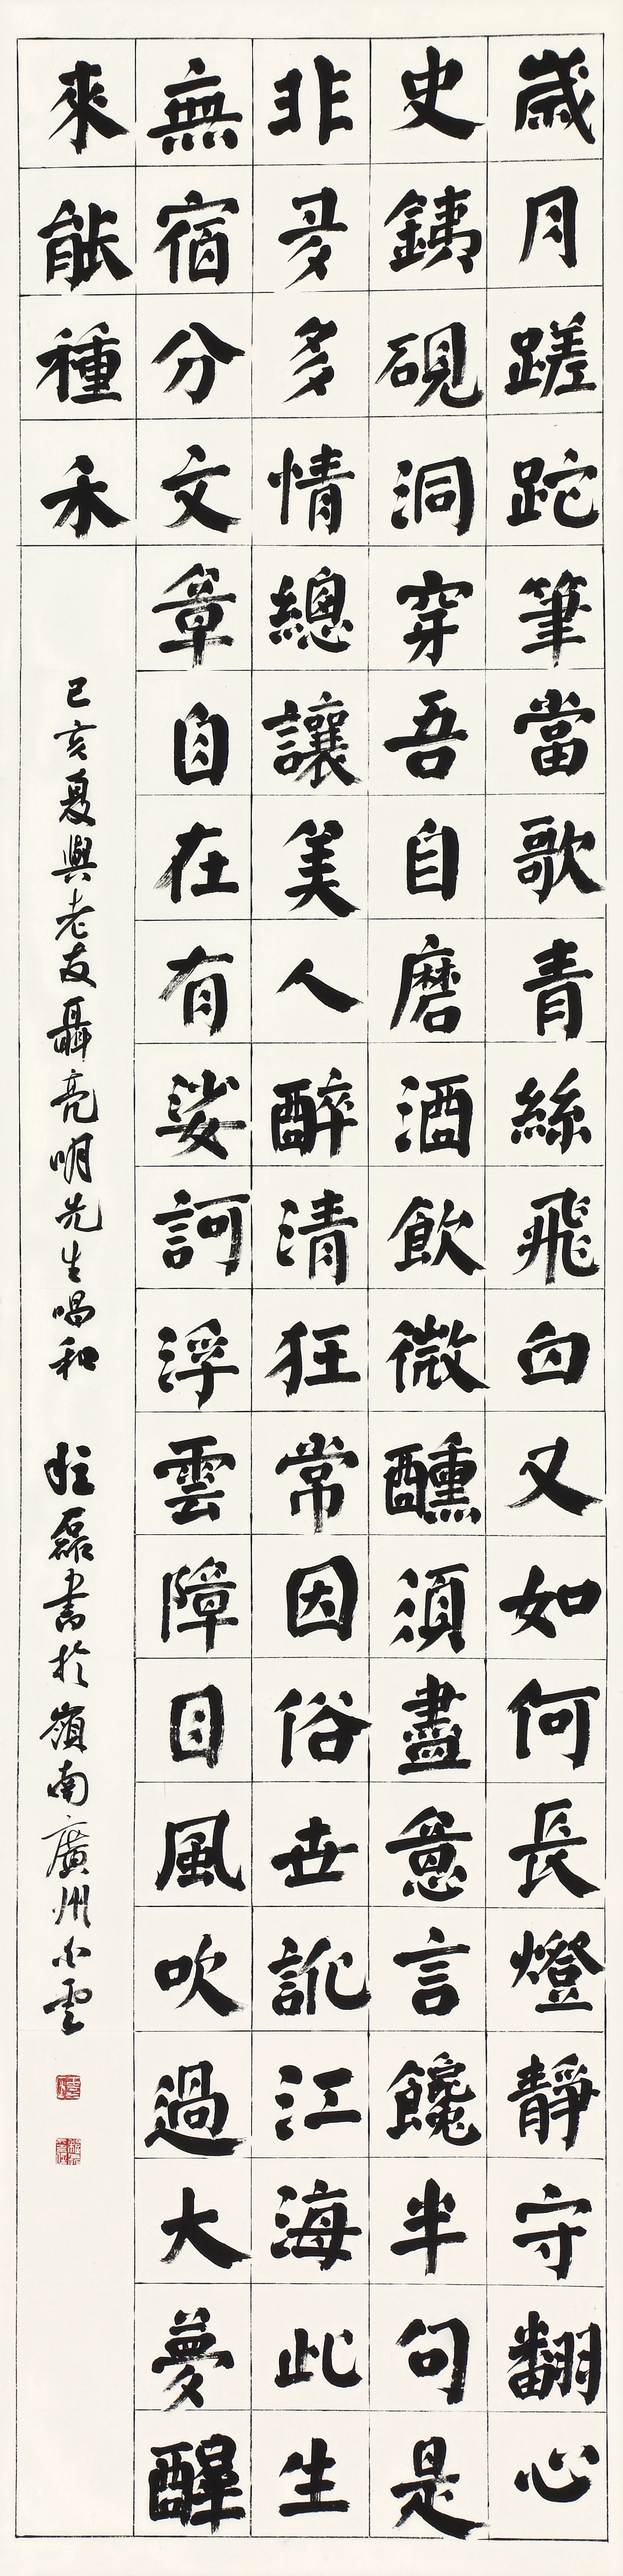 歲月蹉跎筆當歌青絲飛白又如何長燈靜守翻心
史鐵硯洞穿吾自磨酒飲微醺須盡意言饞半句是
非多多情總讓美人醉清狂常因俗世訛江海此生
無宿分文章自在有娑訶浮雲障目風吹過大夢醒
來能種禾
己亥夏與老友聶亮明先生唱和
磊書於嶺南廣州小雲